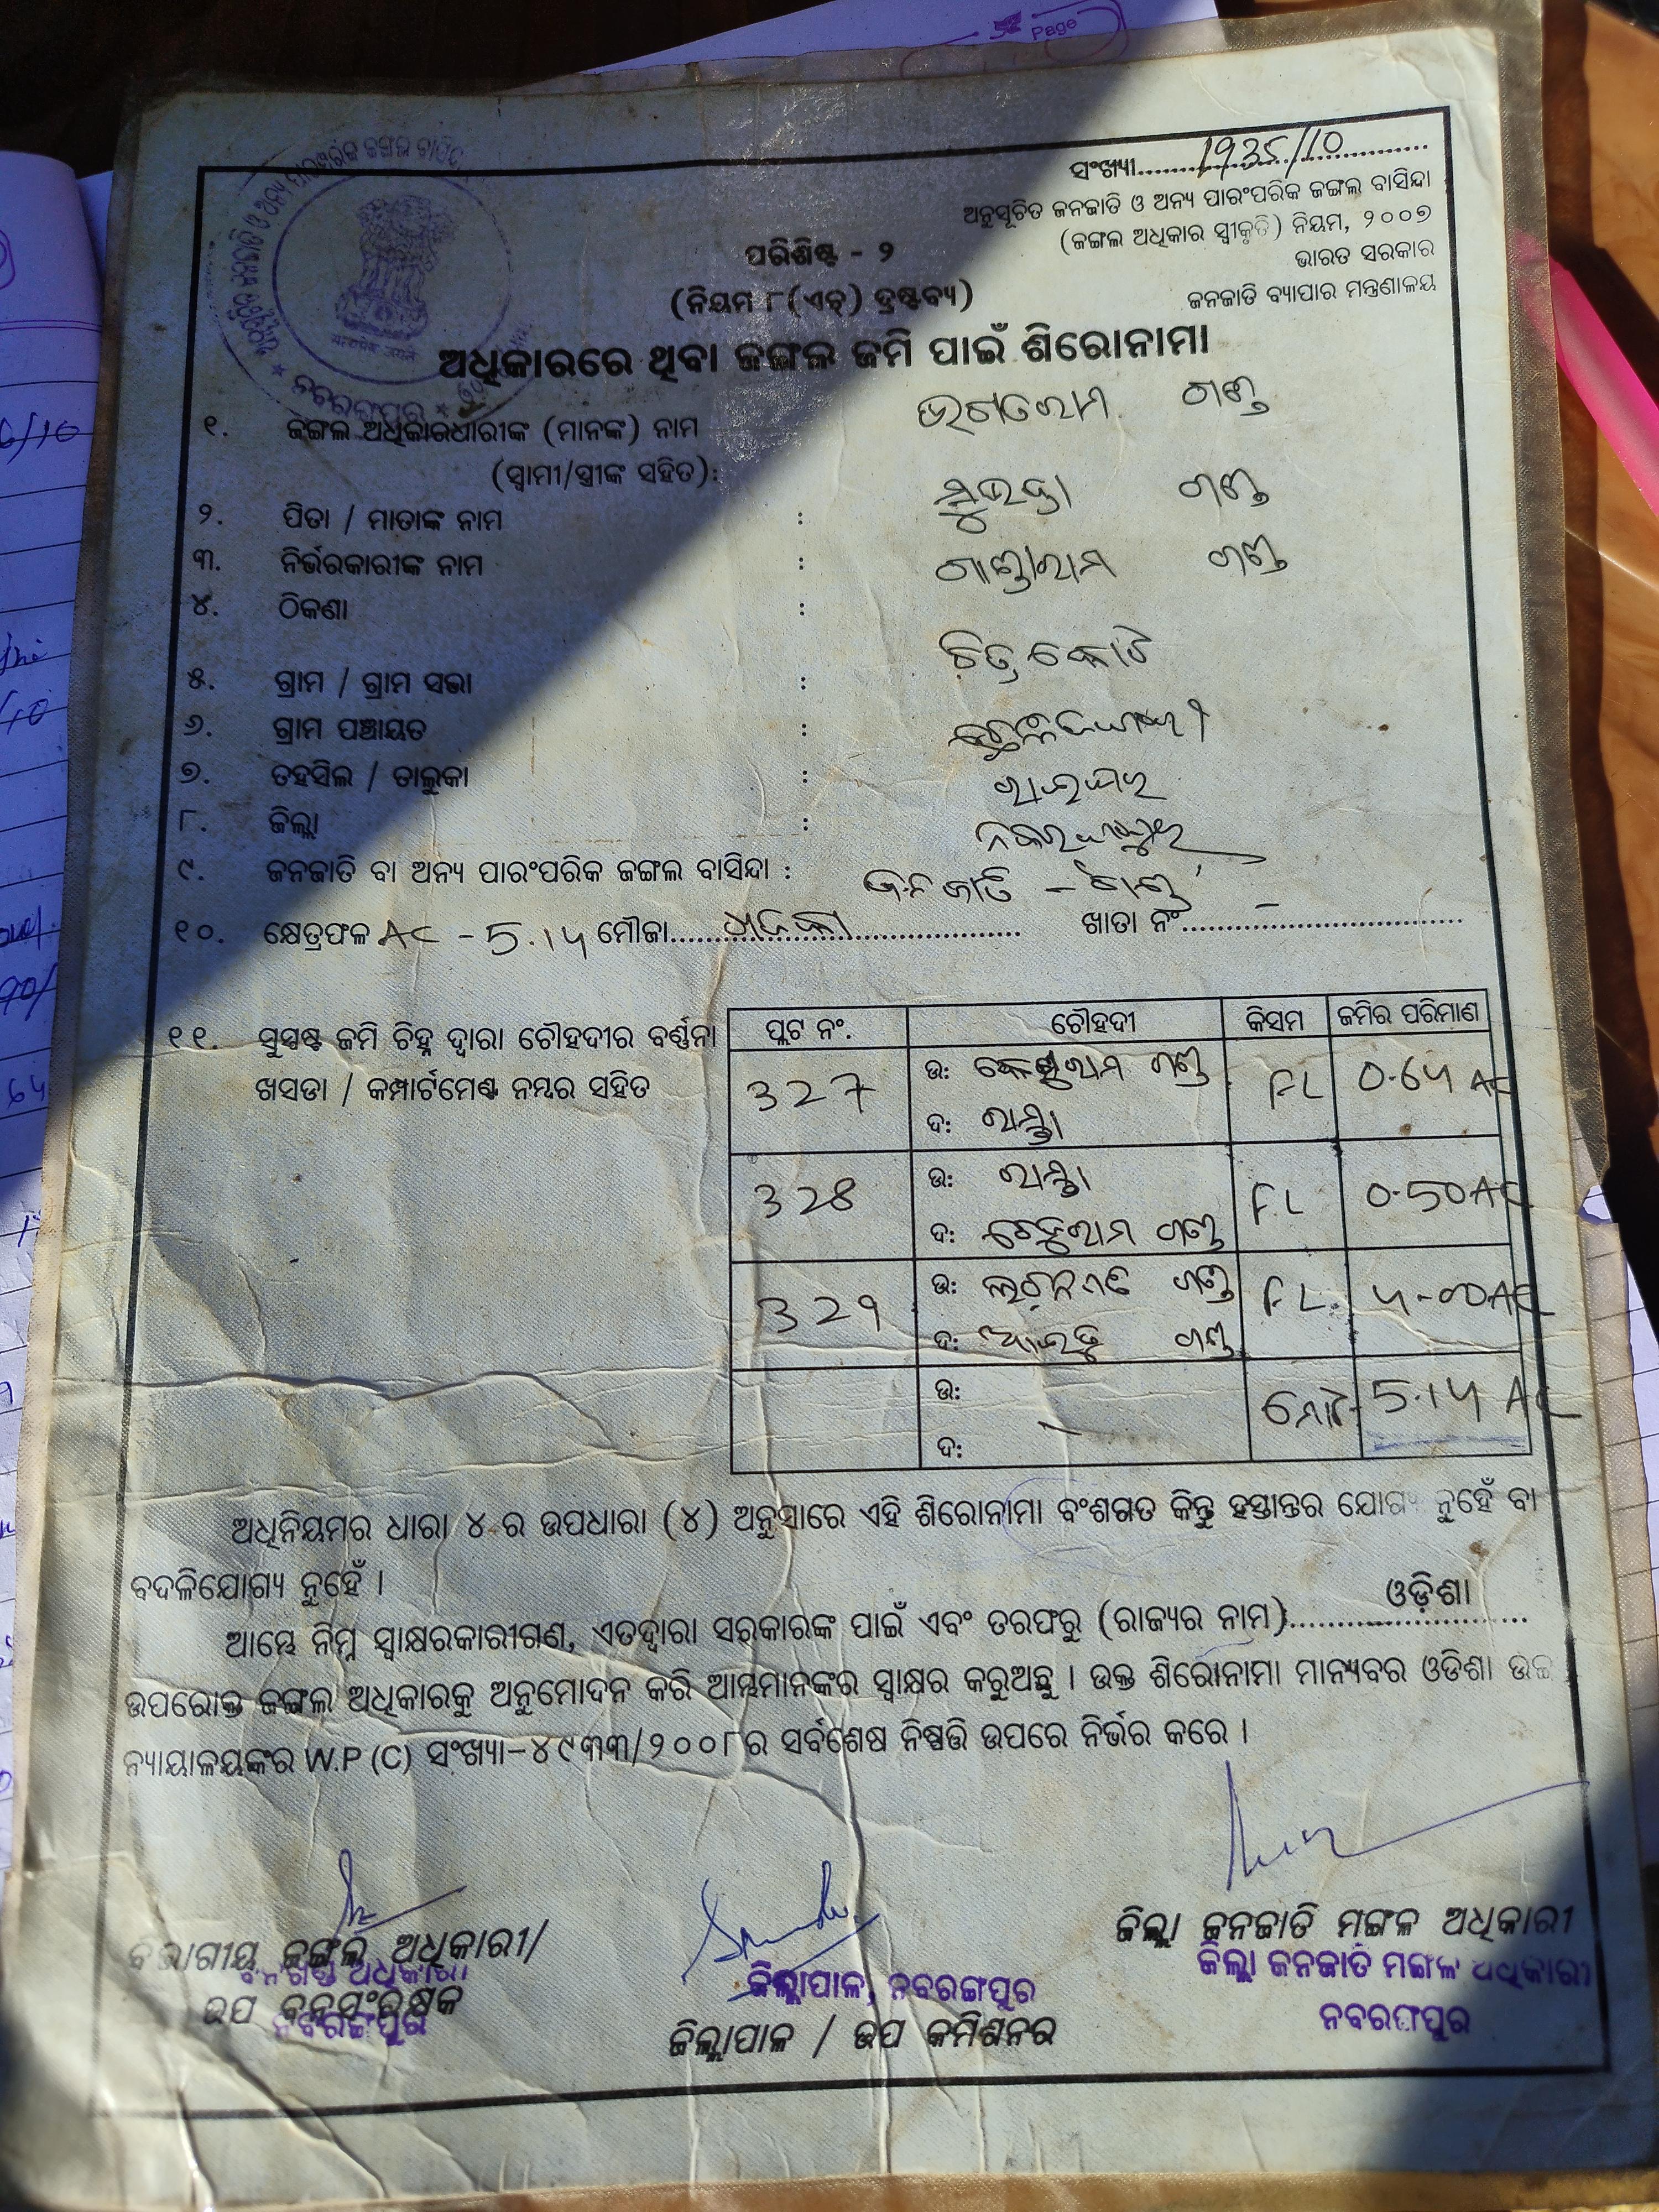 Page
ସଂଖ୍ୟା..........1935/10..........
ଅନୁସୂଚିତ ଜନଜାତି ଓ ଅନ୍ୟ ପାରଂପରିକ ଜଙ୍ଗଲ ବାସିନ୍ଦା
(ଜଙ୍ଗଲ ଅଧିକାର ସ୍ୱୀକୃତି) ନିୟମ, ୨୦୦୭
ଭାରତ ସରକାର
ଜନଜାତି ବ୍ୟାପାର ମନ୍ତ୍ରଣାଳୟ
ପରିଶିଷ୍ଟ - ୨
(ନିୟମ ୮(ଏଚ୍) ଦ୍ରଷ୍ଟବ୍ୟ)
ଅଧିକାରରେ ଥିବା ଜଙ୍ଗଲ ଜମି ପାଇଁ ଶିରୋନାମା
ନବରଙ୍ଗପୁର
୧. ଜଙ୍ଗଲ ଅଧିକାରଧାରୀଙ୍କ (ମାନଙ୍କ) ନାମ ଭଗତରାମ ଗଣ୍ଡ
(ସ୍ୱାମୀ/ସ୍ତ୍ରୀଙ୍କ ସହିତ):
୨. ପିତା / ମାତାଙ୍କ ନାମ : ଗଣ୍ଡ
୩. ନିର୍ଭରକାରୀଙ୍କ ନାମ : ଗଣ୍ଡ
୪. ଠିକଣା :
୫. ଗ୍ରାମ / ଗ୍ରାମ ସଭା : ଚିତ୍ରକୋଟ
୬. ଗ୍ରାମ ପଞ୍ଚାୟତ :
୭. ତହସିଲ / ତାଲୁକା : ରାଇଘର
୮. ଜିଲ୍ଲା : ନବରଙ୍ଗପୁର
୯. ଜନଜାତି ବା ଅନ୍ୟ ପାରଂପରିକ ଜଙ୍ଗଲ ବାସିନ୍ଦା : ଜନଜାତି - ଗଣ୍ଡ
୧୦. କ୍ଷେତ୍ରଫଳ AC - 5.14 ମୌଜା.................... ଖାତା ନଂ....................
୧୧. ସୁସ୍ପଷ୍ଟ ଜମି ଚିହ୍ନ ଦ୍ୱାରା ଚୌହଦୀର ବର୍ଣ୍ଣନା
ଖସଡା / କମ୍ପାର୍ଟମେଣ୍ଟ ନମ୍ବର ସହିତ
ପ୍ଲଟ ନଂ. ଚୌହଦୀ କିସମ ଜମିର ପରିମାଣ
327 ଉ: ଗଣ୍ଡ FL 0.64 AC
ଦ: ରାସ୍ତା
328 ଉ: ରାସ୍ତା FL 0.50 AC
ଦ: ଗଣ୍ଡ
329 ଉ: ଗଣ୍ଡ FL. 4-00 AC
ଦ: ଗଣ୍ଡ
ଉ: ମୋଟ- 5.14 AC
ଦ:
ଅଧିନିୟମର ଧାରା ୪ ର ଉପଧାରା (୪) ଅନୁସାରେ ଏହି ଶିରୋନାମା ବଂଶଗତ କିନ୍ତୁ ହସ୍ତାନ୍ତର ଯୋଗ୍ୟ ନୁହେଁ ବା
ବଦଳିଯୋଗ୍ୟ ନୁହେଁ ।
ଆମ୍ଭେ ନିମ୍ନ ସ୍ୱାକ୍ଷରକାରୀଗଣ, ଏତଦ୍ୱାରା ସରକାରଙ୍କ ପାଇଁ ଏବଂ ତରଫରୁ (ରାଜ୍ୟର ନାମ)........ଓଡ଼ିଶା........
ଉପରୋକ୍ତ ଜଙ୍ଗଲ ଅଧିକାରକୁ ଅନୁମୋଦନ କରି ଆମ୍ଭମାନଙ୍କର ସ୍ୱାକ୍ଷର କରୁଅଛୁ । ଉକ୍ତ ଶିରୋନାମା ମାନ୍ୟବର ଓଡିଶା ଉଚ୍ଚ
ନ୍ୟାୟାଳୟଙ୍କର W.P (C) ସଂଖ୍ୟା-୪୯୩୩/୨୦୦୮ର ସର୍ବଶେଷ ନିଷ୍ପତ୍ତି ଉପରେ ନିର୍ଭର କରେ ।
ବିଭାଗୀୟ ଜଙ୍ଗଲ ଅଧିକାରୀ/
ବନଖଣ୍ଡ ଅଧିକାରୀ
ଉପ ବନସଂରକ୍ଷକ
ନବରଙ୍ଗପୁର
ଜିଲ୍ଲାପାଳ, ନବରଙ୍ଗପୁର
ଜିଲ୍ଲାପାଳ / ଉପ କମିଶନର
ଜିଲ୍ଲା ଜନଜାତି ମଙ୍ଗଳ ଅଧିକାରୀ
ଜିଲ୍ଲା ଜନଜାତି ମଙ୍ଗଳ ଅଧିକାରୀ
ନବରଙ୍ଗପୁର